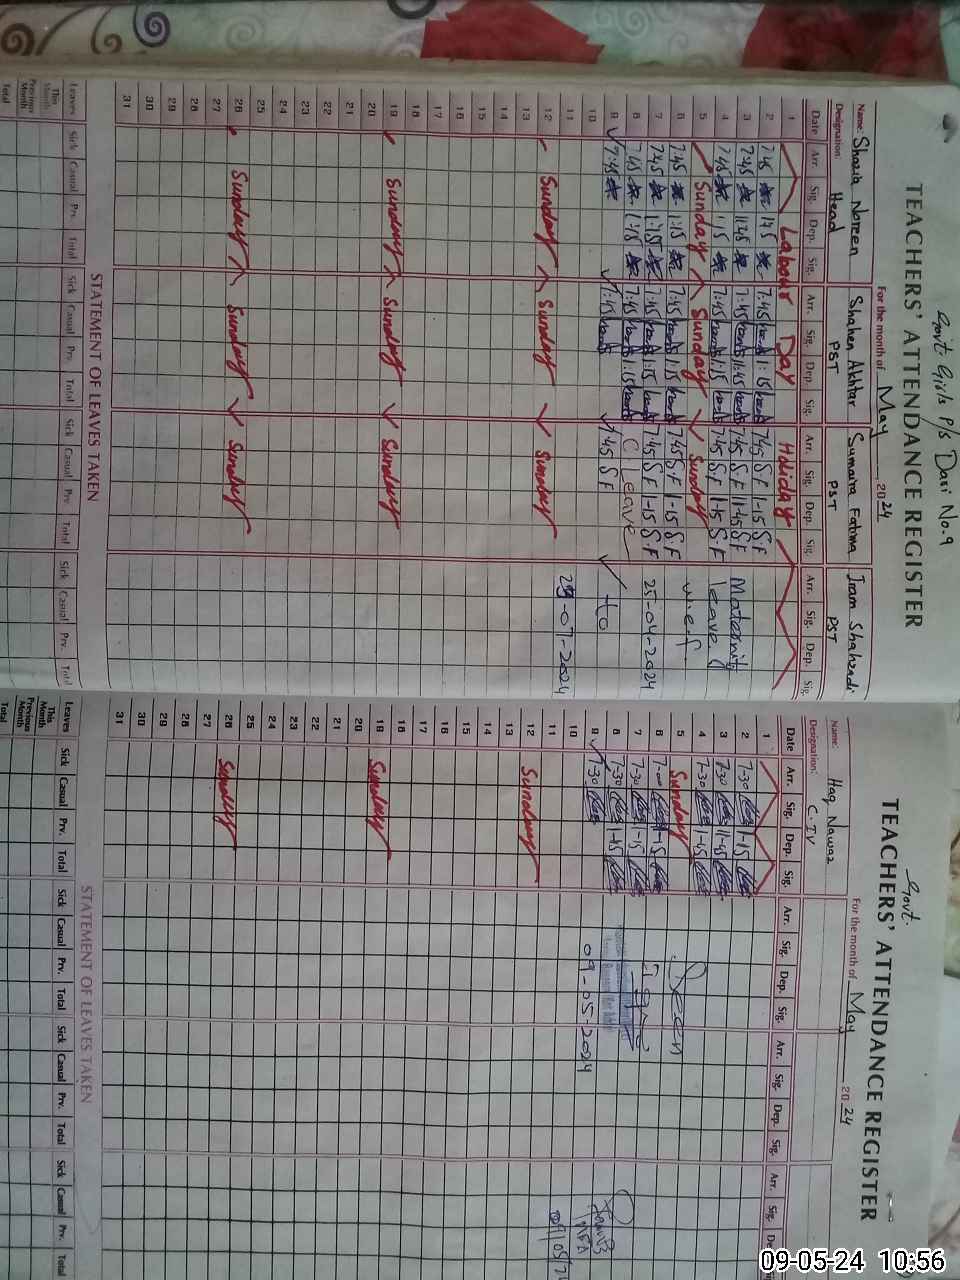 Govt Girls P/s Dari No.9
TEACHERS' ATTENDANCE REGISTER
For the month of May 2024
Name: Shazia Noreen Shahen Akhtar Sumaira Fatima Iram Shahzadi
Designation: Head PST PST PST
Date Arr. Sig. Dep. Sig. Arr. Sig. Dep. Sig. Arr. Sig. Dep. Sig. Arr. Sig. Dep. Sig.
1 Labour Day Holiday
2 7:45 1:15 7:45 1:15 7.45 S.F 1-15 S.F
3 7:45 11:45 7:45 11:45 7.45 S.F 11-45 S.F Maternity
4 7:45 1:15 7:45 1:15 7.45 S.F 1-15 S.F leave
5 Sunday Sunday Sunday w.e.f
6 7:45 1:15 7:45 1:15 7.45 S.F 1-15 S.F
7 7:45 1:15 7:45 1:15 7.45 S.F 1-15 S.F 25-04-2024
8 7:45 1:15 7:45 1:15 C leave
9 7:45 7:45 1:15 7:45 S.F to
10
11 23-07-2024
12 Sunday Sunday Sunday
13
14
15
16
17
18
19 Sunday Sunday Sunday
20
21
22
23
24
25
26 Sunday Sunday Sunday
27
28
29
30
31
STATEMENT OF LEAVES TAKEN
Leaves Sick Casual Prv. Total Sick Casual Prv. Total Sick Casual Prv. Total Sick Casual Prv. Total
This Month
Previous Month
Total
Govt.
TEACHERS' ATTENDANCE REGISTER
For the month of May 2024
Name: Haq Nawaz
Designation: C-IV
Date Arr. Sig. Dep. Sig. Arr. Sig. Dep. Sig. Arr. Sig. Dep. Sig. Arr. Sig. De
1
2 7-30 1-15
3 7-30 11-45
4 7-30 1-45
5 Sunday Seen
6 7-00 1-15
7 7-30 1-15
8 7-30 1-45
9 7-30 09-05-2024
10
11 09/05/2
12 Sunday
13
14
15
16
17
18
19 Sunday
20
21
22
23
24
25
26 Sunday
27
28
29
30
31
STATEMENT OF LEAVES TAKEN
Leaves Sick Casual Prv. Total Sick Casual Prv. Total Sick Casual Prv. Total Sick Casual Prv. Total
This Month
Previous Month
Total
09-05-24 10:56